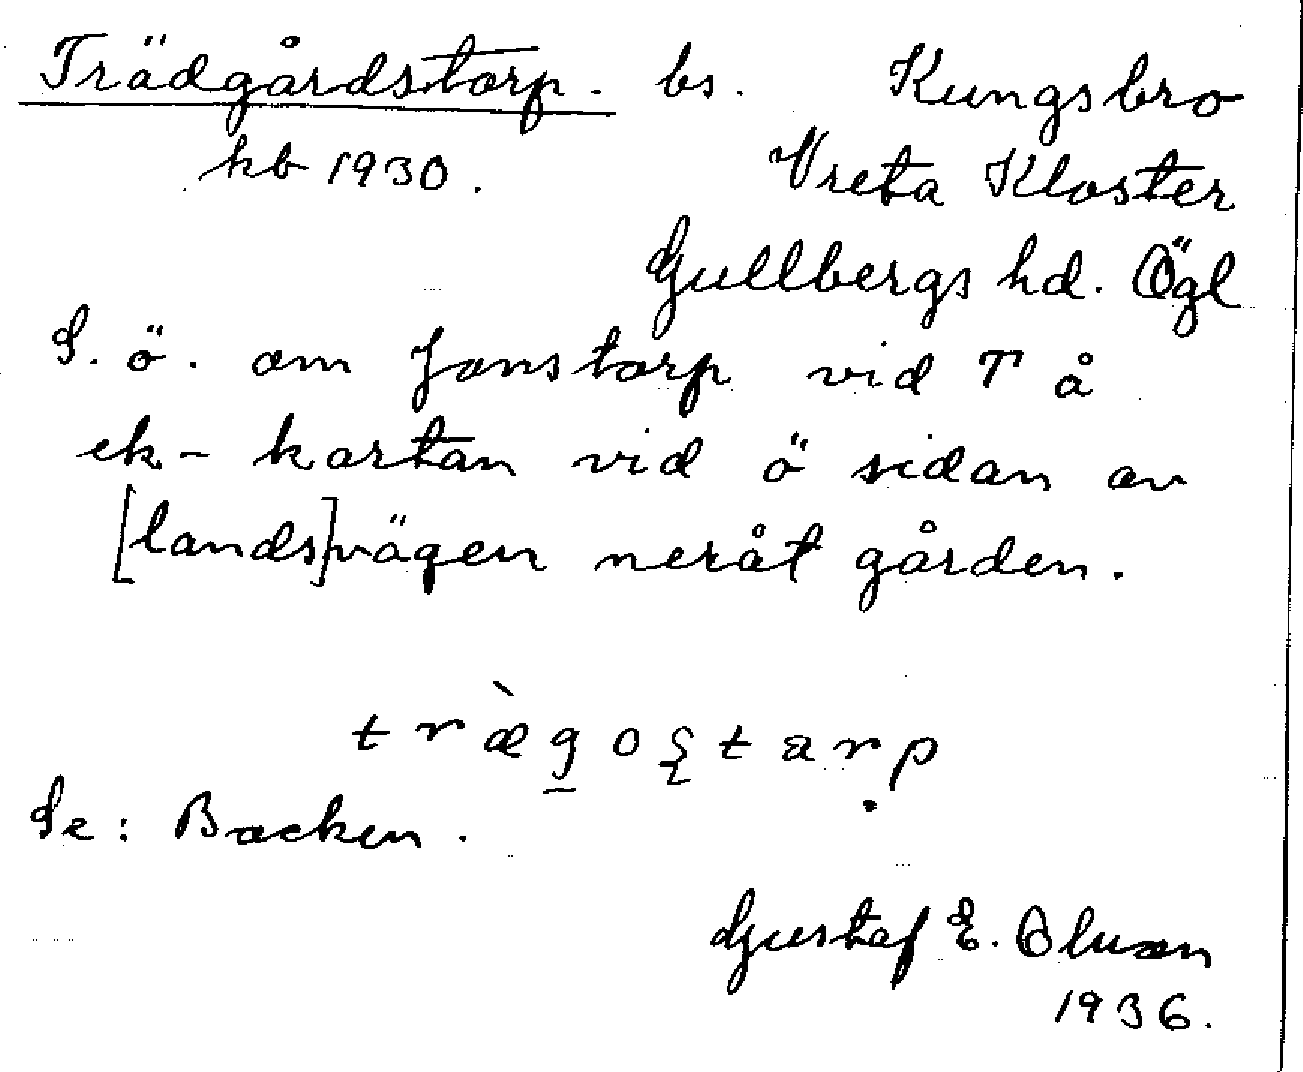 Trädgårdstorp. bs. Kungsbro
kb 1930. Vreta Kloster
Gullbergs hd. Ögl
S. ö. om Jonstorp vid T å
ek-kartan vid ö sidan av
[lands]vägen neråt gården.
træ̀go̱ștarp̣
Se: Backen.
Gustaf E. Olsson
1936.